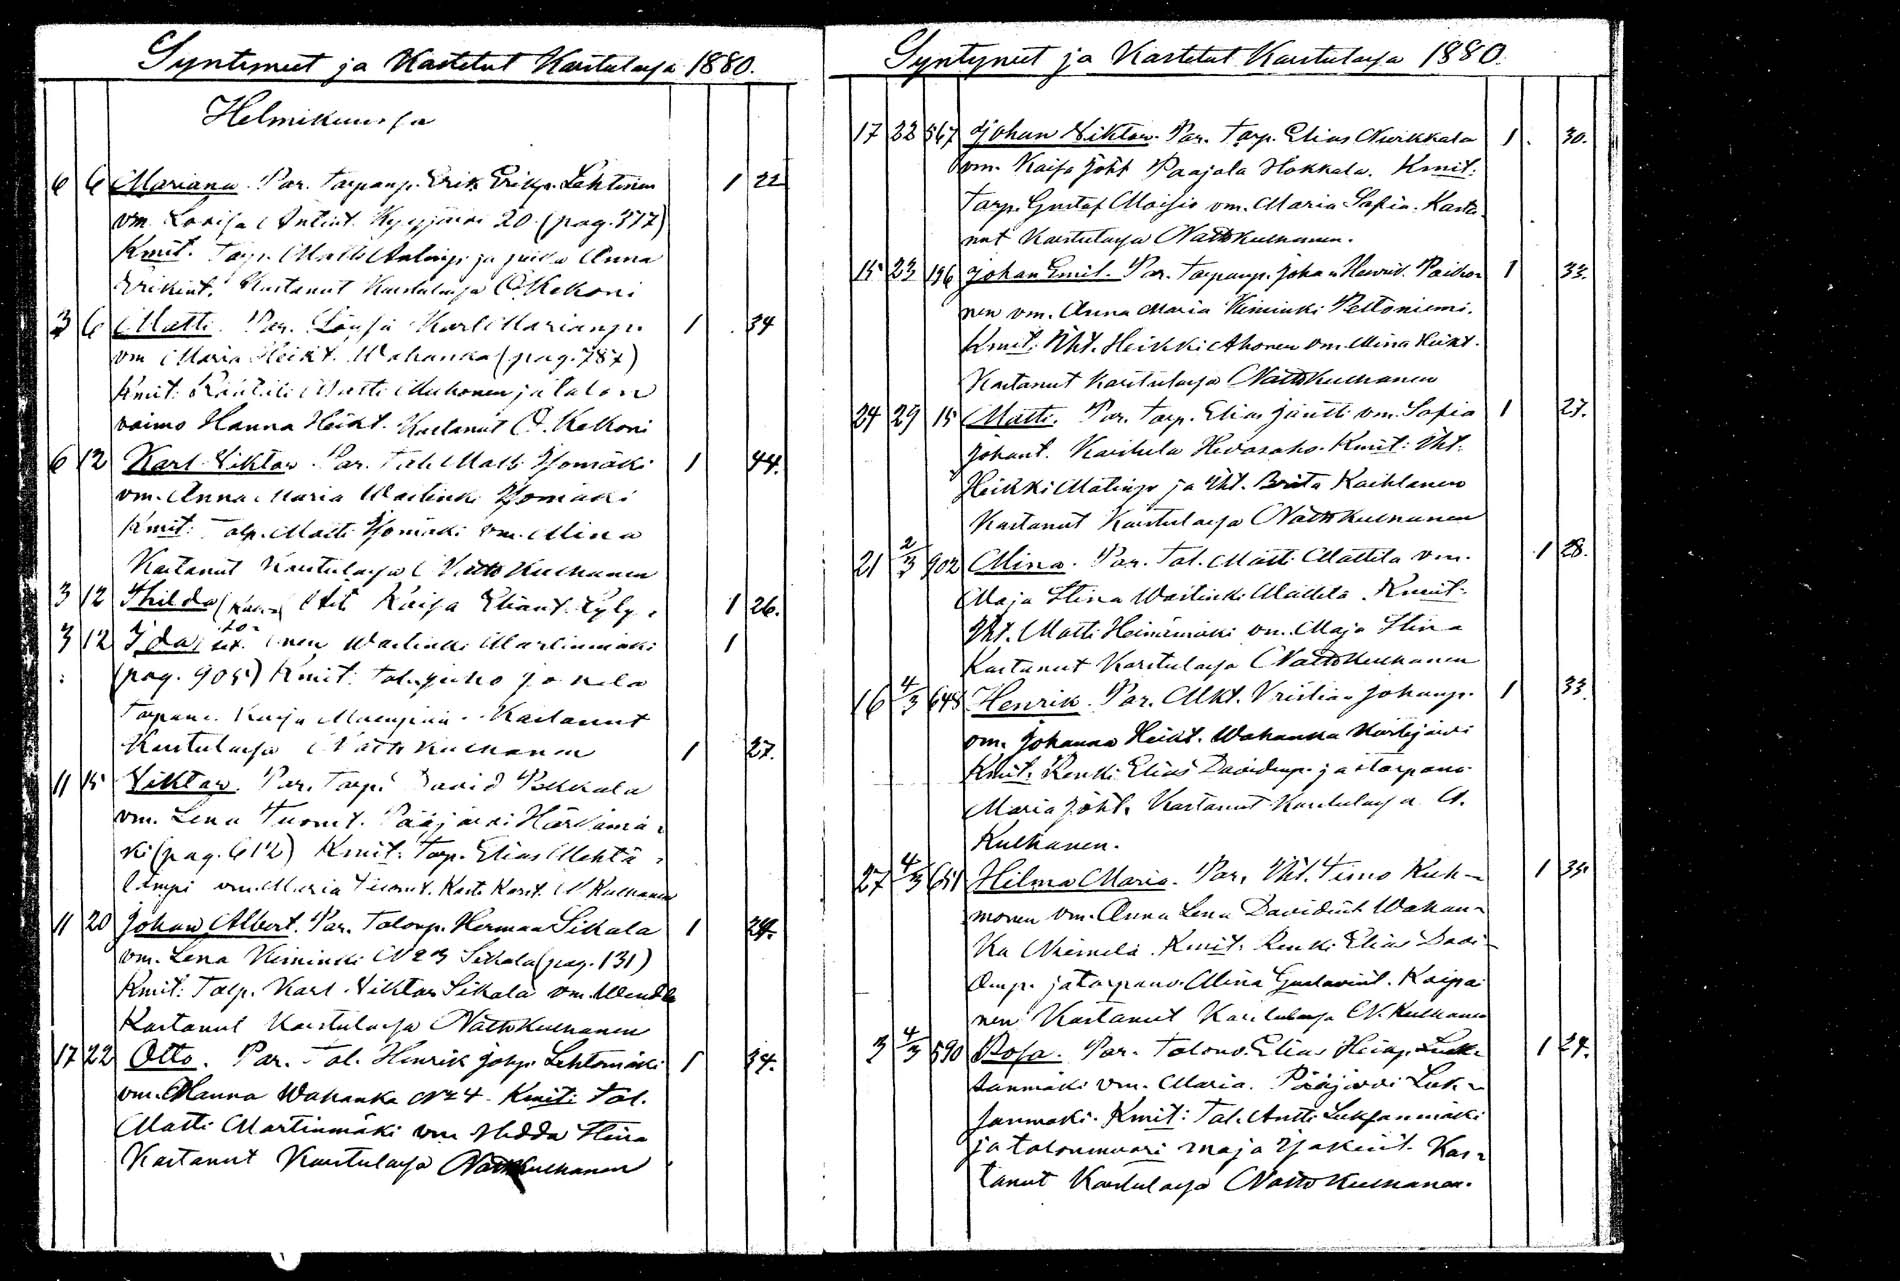 Syntyneet ja Kastetut Karstulassa 1880.
Helmikuussa
6 6 Mariana. Par. Torpanp. Erik Erikp. Lehtinen 1 22
vm. Lovisa Antint. Kyyjärvi 20 (pag. 377)
Kmit. Torp. Matti Antinp. ja piika Anna
Erikint. Kastanut Karstulassa O. Kekoni
3 6 Matti. Par. Karl 1 34
vm Maria Heikt. Wahanka (pag. 787)
Kmit. Räätäli Matti Muhonen ja talon
vaimo Hanna Heikt. Kastanut O. Kekoni
6 12 Karl Viktor. Par. Tal. Matti Isomäki 1 44.
vm. Anna Maria Wastinki Isomäki
Kmit: Talp. Matti Isomäki vm. Mina
Kastanut Karstulassa Natti Kulhanen
3 12 Hilda Äiti Kaisa Eliant. Kyly- 1 26.
3 12 Ida nen Wastinki Martinmäki 1
(pag. 905) Kmit: Jokela
Kastanut
Karstulassa Natti Kulhanen 1 27.
11 15 Viktor. Par. Torp. David Pekkala
vm. Lena Tuomt. Pääjärvi Härkämä-
ki (pag. 612) Kmit: Torp. Elias Mehtä-
lämpi vm. Maria Tuomt. Kast. Karst. N. Kulhanen
11 20 Johan Albert. Par. Talonp. Herman Sikala 1 24.
vm. Lena Kiminki No 23 Sikala (pag. 131)
Kmit: Talp. Karl Viktor Sikala vm. Wendla
Kastanut Karstulassa Natti Kulhanen
17 22 Otto. Par. Tal. Henrik Johp. Lehtomäki 1 34.
vm. Hanna Wahanka No 4. Kmit: Tal.
Matti Martinmäki vm. Hedda Stina
Kastanut Karstulassa Natti Kulhanen
Syntyneet ja Kastetut Karstulassa 1880.
17 22 567 Johan Viktor. Par. Torp. Elias Nurkkala 1 30.
vm. Kaisa Joht. Paajala Hokkala. Kmit:
Torp. Gustaf Moisio vm. Maria Sofia. Kasta-
nut Karstulassa Natti Kulhanen.
15 23 196 Johan Emil. Par. Torpanp. Johan Henrik Poiko- 1 33.
nen vm. Anna Maria Kiminki Peltoniemi.
Kmit: Itht. Heikki Ahonen vm. Mina Heikt.
Kastanut Karstulassa Natti Kulhanen
24 29 15 Matti. Par. Torp. Elias Jantti vm. Sofia 1 27.
Johant. Karstula Hevosaho. Kmit: Itht.
Heikki Matinp. ja Itht. Brita Kaihlanen
Kastanut Karstulassa Natti Kulhanen
21 2/3 902 Mina. Par. Tal. Matti Mattila vm. 1 28.
Maja Stina Wastinki Mattila. Kmit:
Itht. Matti Heinämäki vm. Maja Stina
Kastanut Karstulassa Natti Kulhanen
16 4/3 648 Henrik. Par. Mkt. Kristian Johanp. 1 33.
vm. Johanna Heikt. Wahanka
Kmit. Renki Elias Davidinp. ja itorpano
Maria Joht. Kastanut Karstulassa N.
Kulhanen.
27 4/3 651 Hilma Maria. Par. Itht. Timo Kuk- 1 35.
monen vm. Anna Lena Davidint. Wahan-
ka Niemelä. Kmit: Renki Elias Davi-
dinp. ja torpano. Mina Gustavint. Koipai
nen Kastanut Karstulassa N. Kulhanen
3 4/3 590 Rosa. Par. Talono. Elias Heikp. Luk- 1 24.
sanmäki vm. Maria. Pääjärvi Luk-
sanmäki. Kmit: Tal. Antti Luksanmäki
ja talonmuori Maja Isakint. Kas-
tanut Karstulassa Natti Kulhanen.